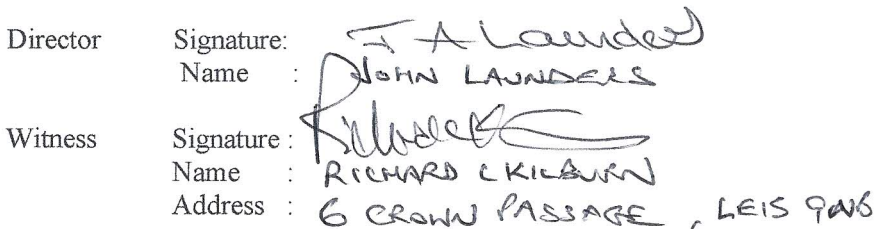 Director Signature: J A Launders
Name : JOHN LAUNDERS
Witness Signature :
Name : RICHARD C KILBURN
Address : 6 CROWN PASSAGE,